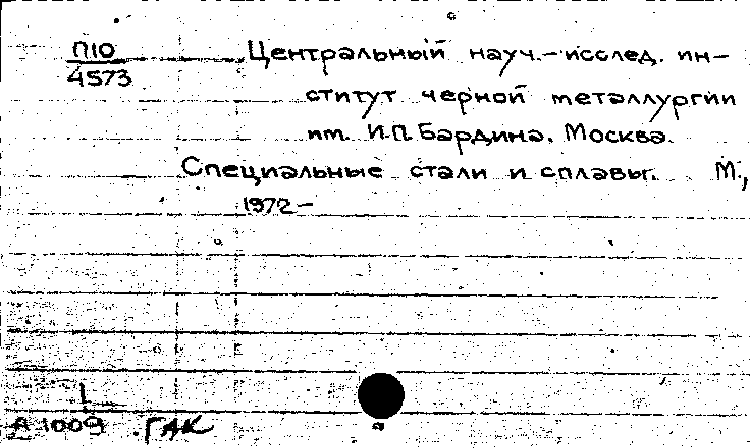 П10
4573
Центральный науч.-исслед. ин-
ститут черной металлургии
им. И.П. Бардина. Москва.
Специальные стали и сплавы. М.,
1972-
1
А 1009 ГАК